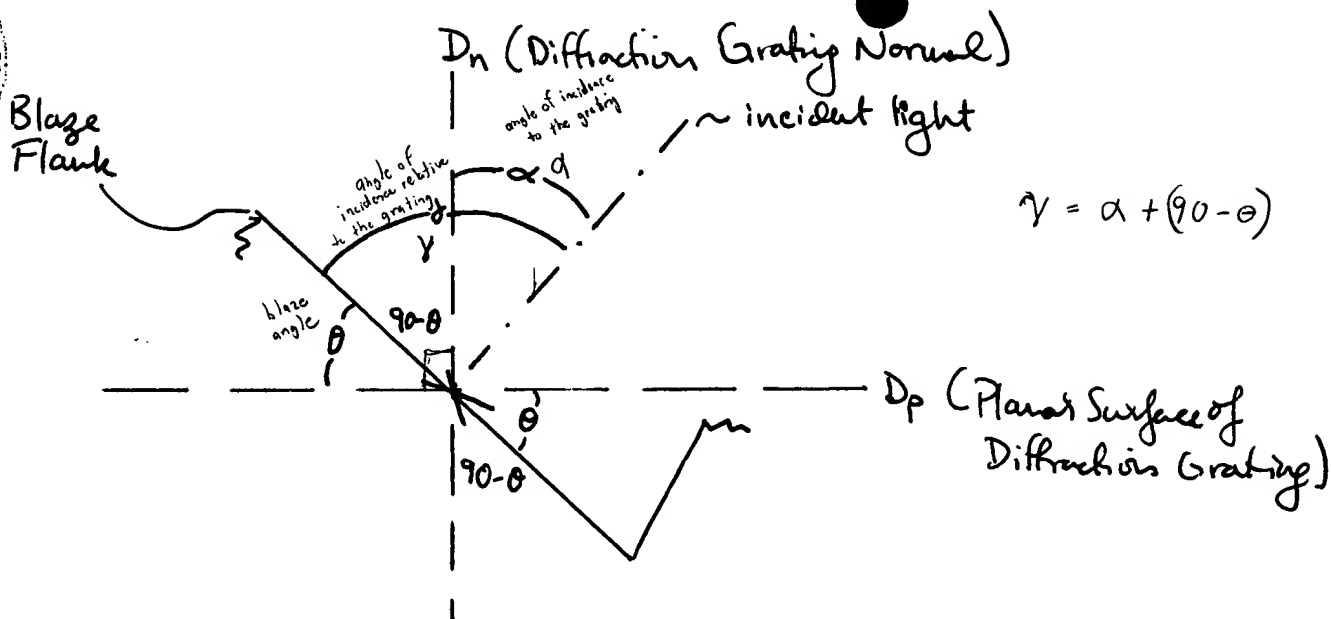 Dn (Diffraction Grating Normal)
angle of incidence
to the grating
~ incident light
Blaze
Flank
angle of
incidence relative
to the grating
α α
γ = α + (90-θ)
γ
blaze
angle
θ
90-θ
Dp (Planar Surface of
Diffraction Grating)
θ
90-θ